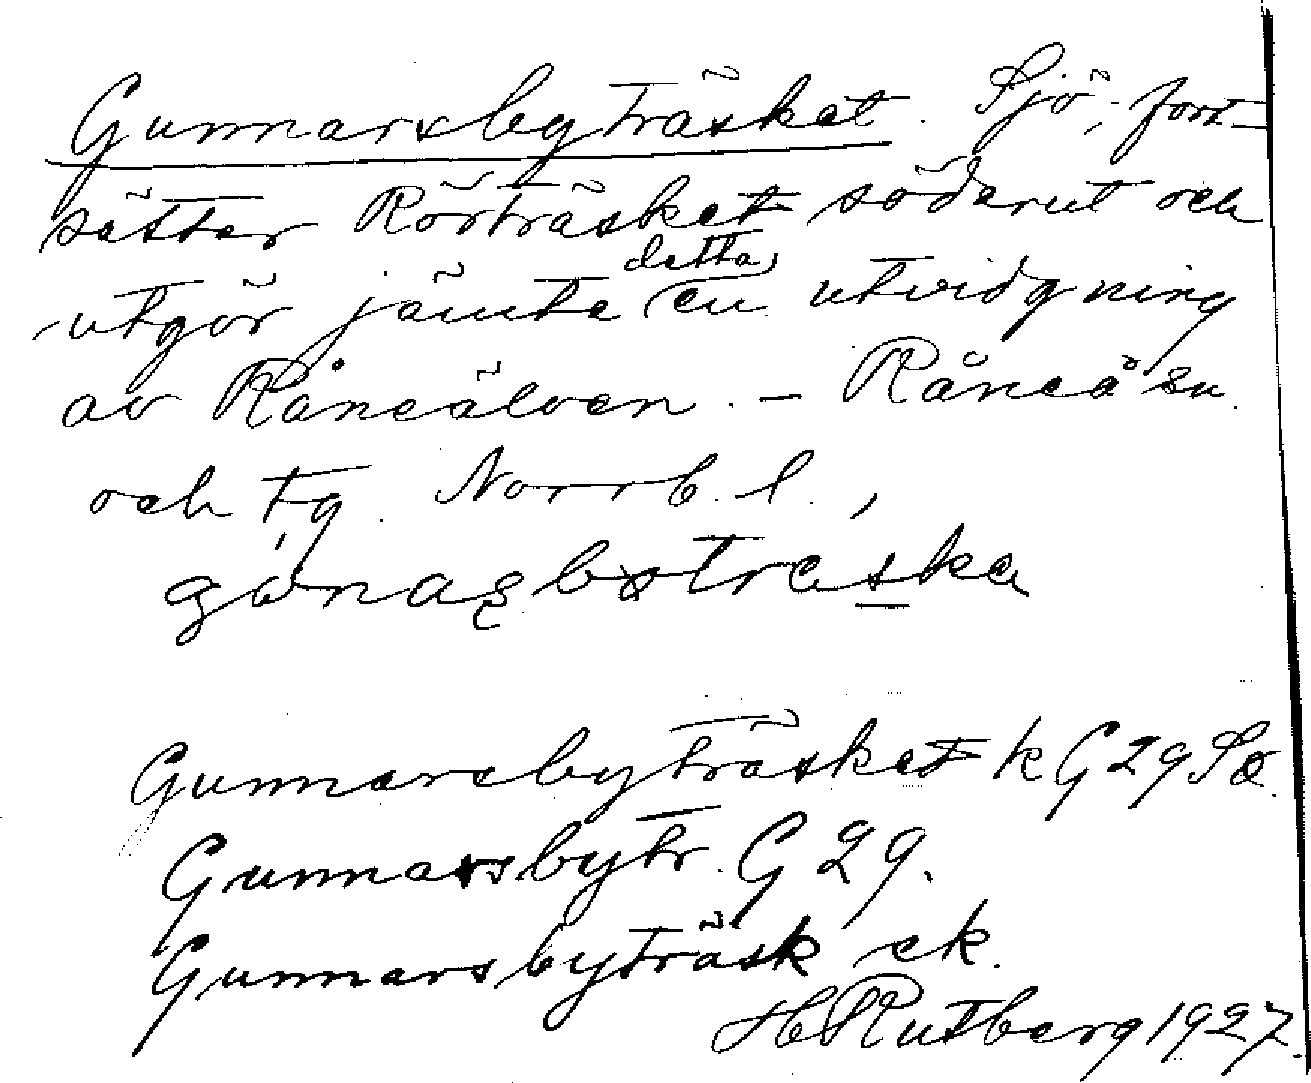 Gunnarsbyträsket. Sjö; fort-
sätter Rörträsket söderut och
utgör jämte detta en utvidgning
av Råneälven. – Råneå sn.
och tg. Norrb. l.,
Gunnarsbyträsket k G 29 Sö.
Gunnarsbytr. G 29.
Gunnarsbyträsk ek.
H Rutberg 1927.